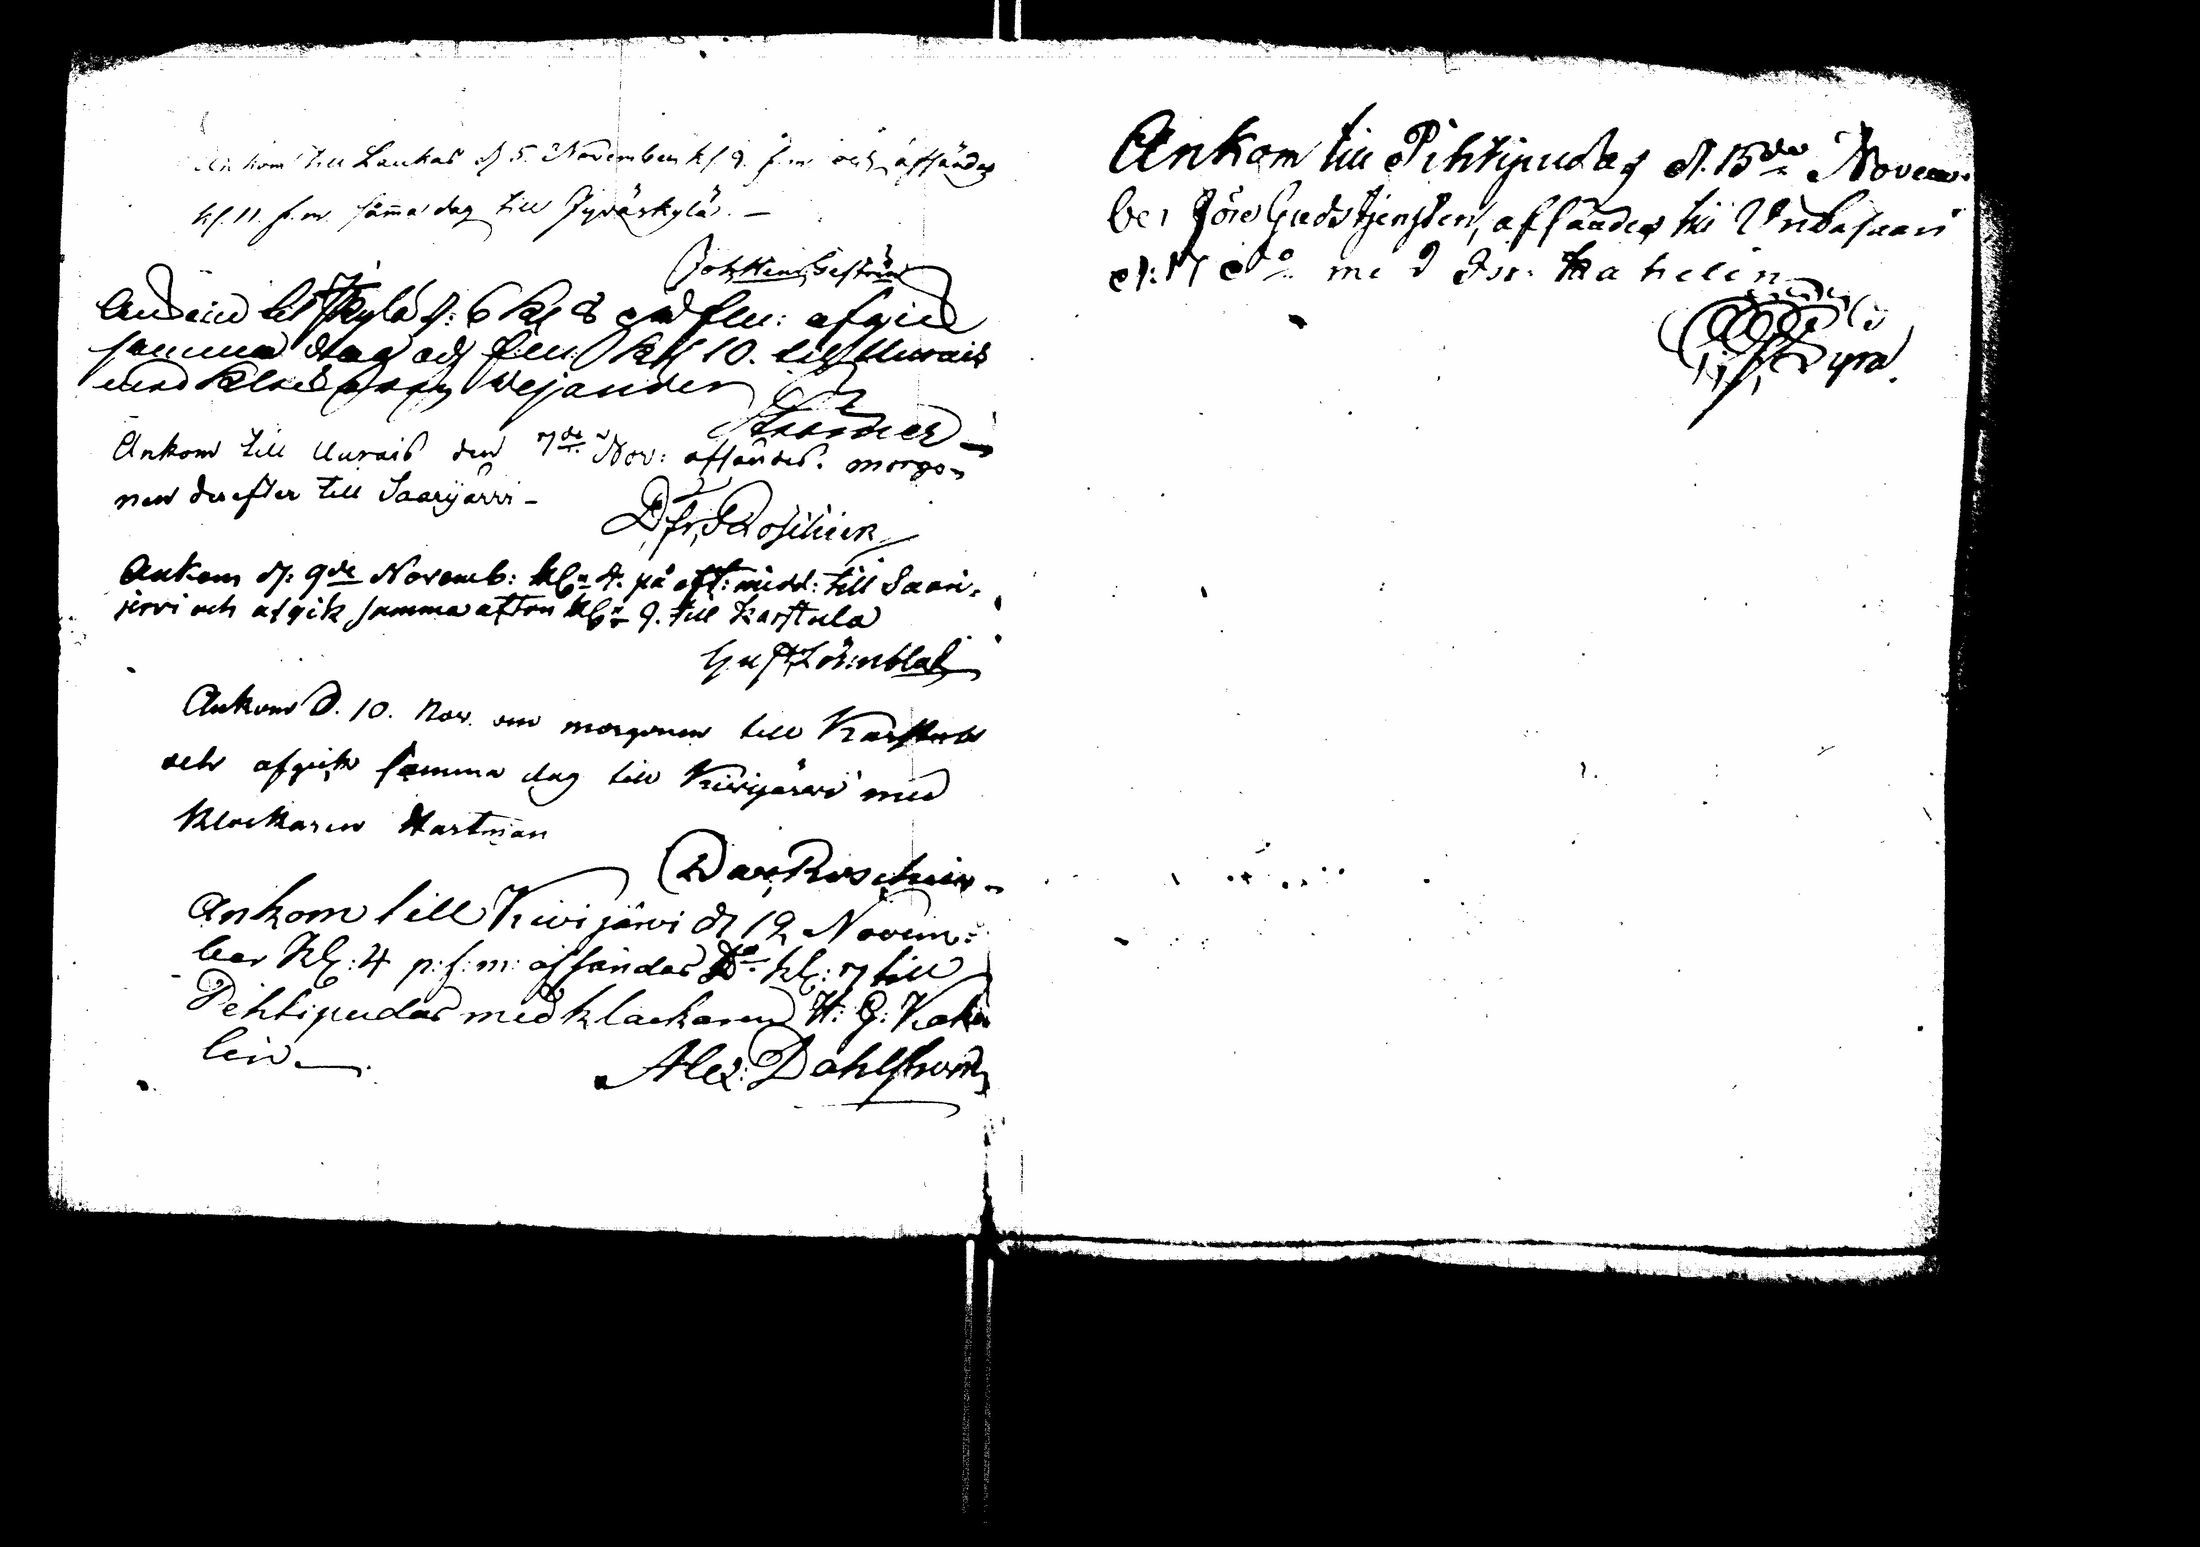 Ankom till Laukas d 5. November kl 9. f.m. och affändes
kl. 11. f.m. samma dag till Jyväskylä. —
Joh
d: 6 kl 8 f.m: afgick
samma dag f.m: kl 10. till Uurais
med Wejander
Ankom till Uurais den 7de Nov: affändes morgo-
nen derefter till Saarijärvi -
D. fr. Roschier
Ankom d: 9de Novemb: kl. på eft: midd: till Saari-
jervi och afgik samma afton kl. 9. till Karstula
Gust Lönnblad
Ankom d. 10. Nov. om morgonen till Karstula
och afgick samma dag till Kivijärvi med
Klockaren Hartman
Dav. Roschier
Ankom till Kivijärvi d 12 Novem-
ber Kl: 4 p: f: m: affändes Do kl: 7 till
Pihtipudas med klockaren H: G: Kahe
lin.
Alex: Dahlström
Ankom till Pihtipudas d. 15de Novem-
ber före Gudstjensten, affändes till
d: 17 do med Kahelin